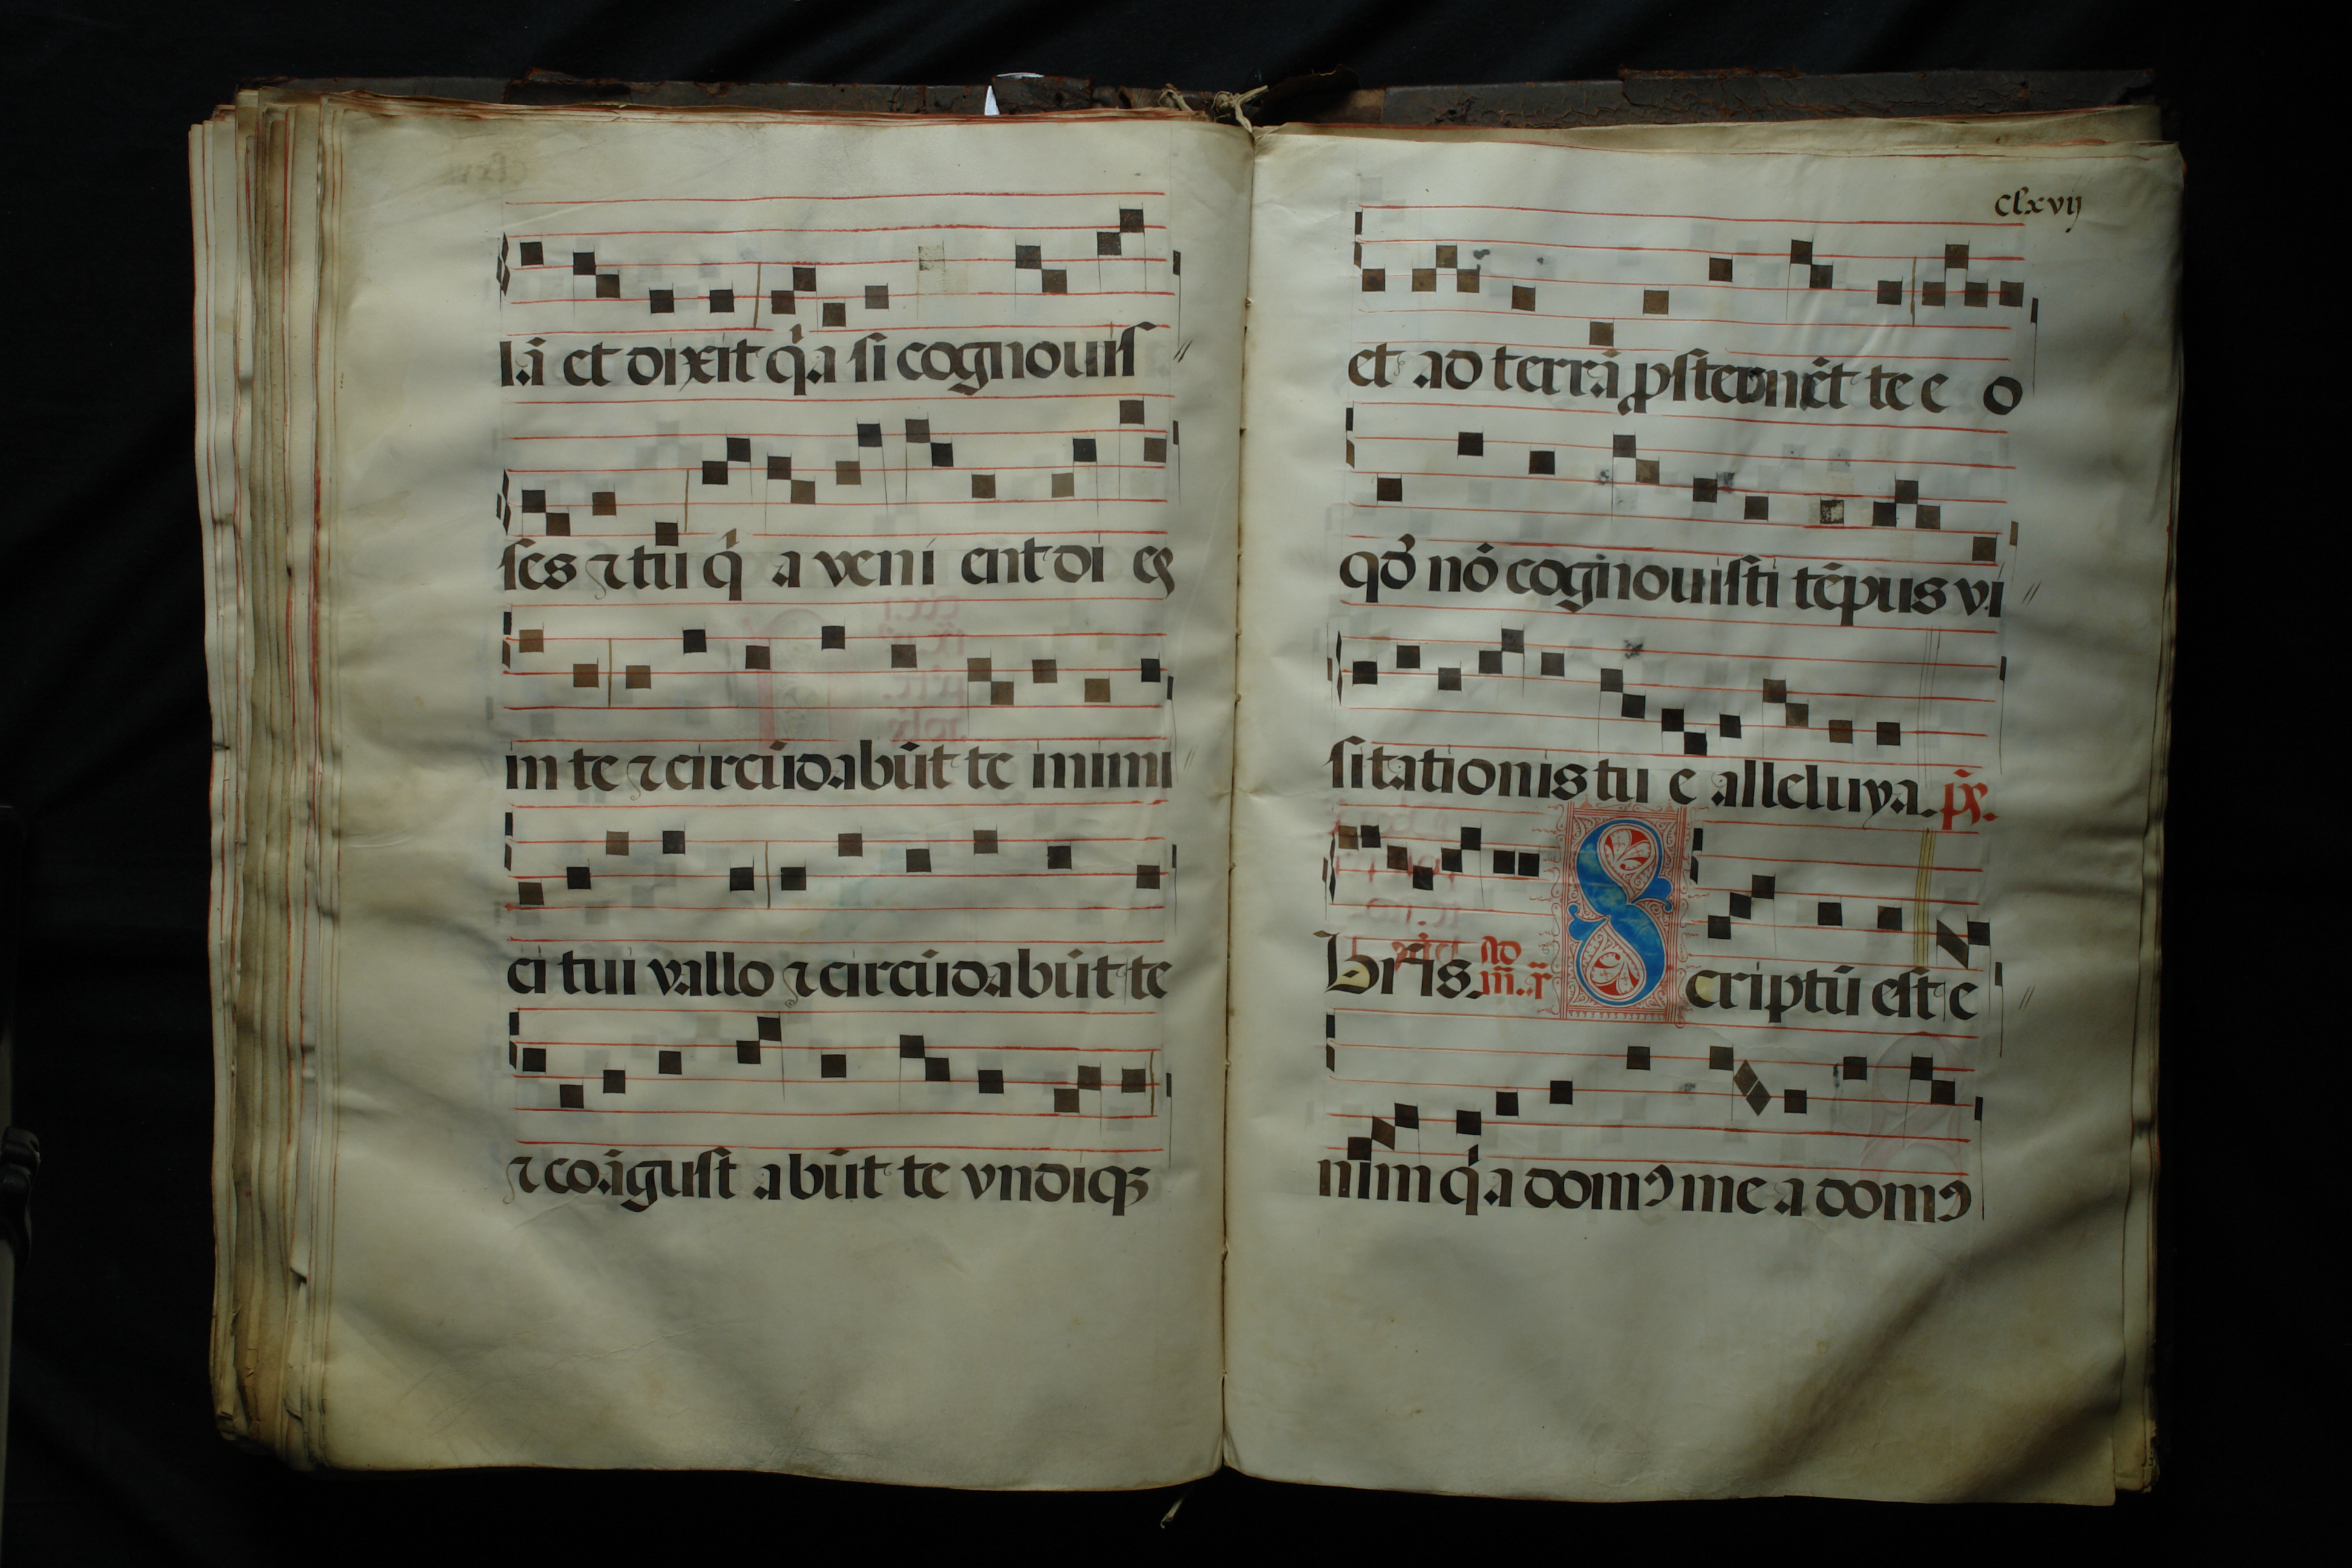 lā et dixit q̇a si cognouiſ //
ſes ⁊ tu q̇ a veni ent di eꝫ
in te ⁊ circūdabūt te inimi //
ci tui vallo ⁊ circūdabūt te
⁊ coāguſt abūt te vndiqꝫ
Clxvij
et ad terrā ꝓſternēt te e o
qď nō cognouiſti tēpus vi //
ſitationis tu e alleluya. p̄s.
bris. Ad m̄. r̄ Scriptū eſt e //
nim q̇a domꝰ me a domꝰ